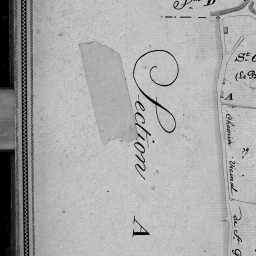 D
St
A
Section A
Chemin Vicinal de St